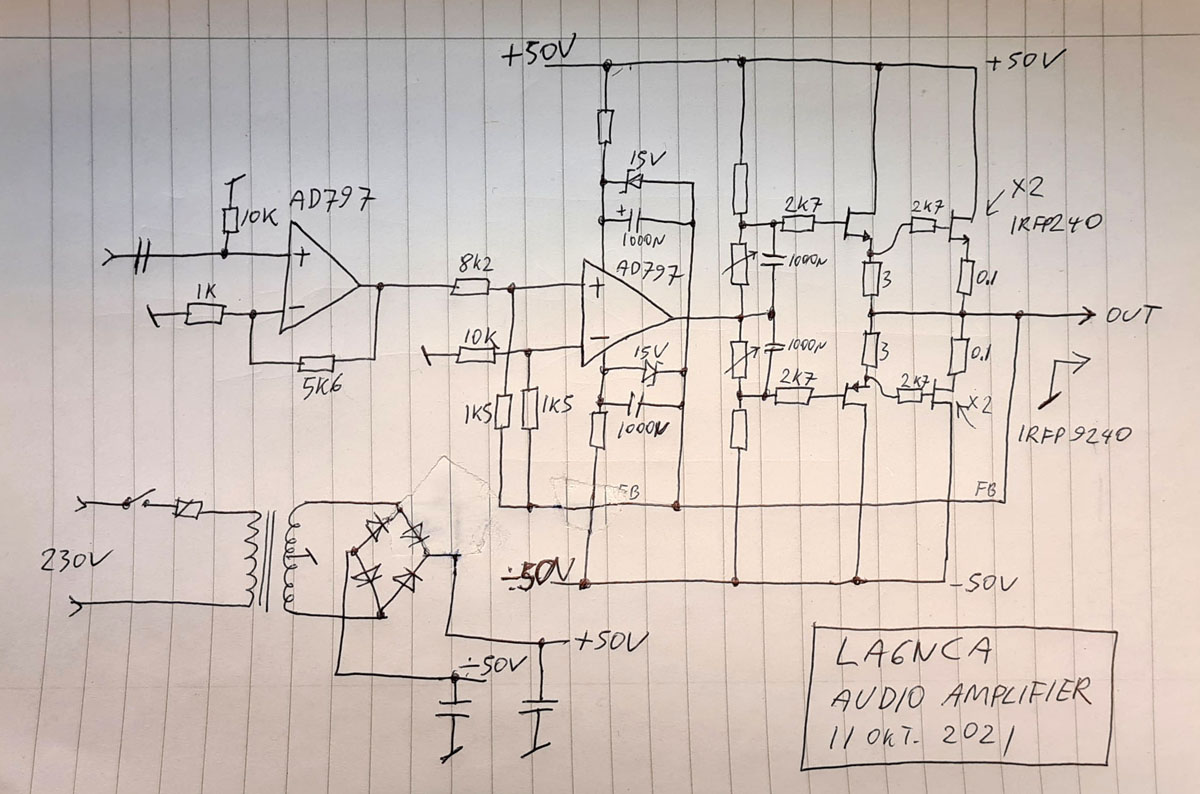 +50V
+50V
15V
AD797
10K
+
1000N
2K7
2K7
X2
IRFP240
+
−
1K
5K6
8k2
AD797
+
−
10K
15V
1000N
1K5
1K5
1000N
1000N
3
0.1
3
0.1
OUT
2K7
2K7
X2
IRFP9240
FB
FB
230V
÷50V
-50V
+50V
÷50V
LA6NCA
AUDIO AMPLIFIER
11 OKT. 2021